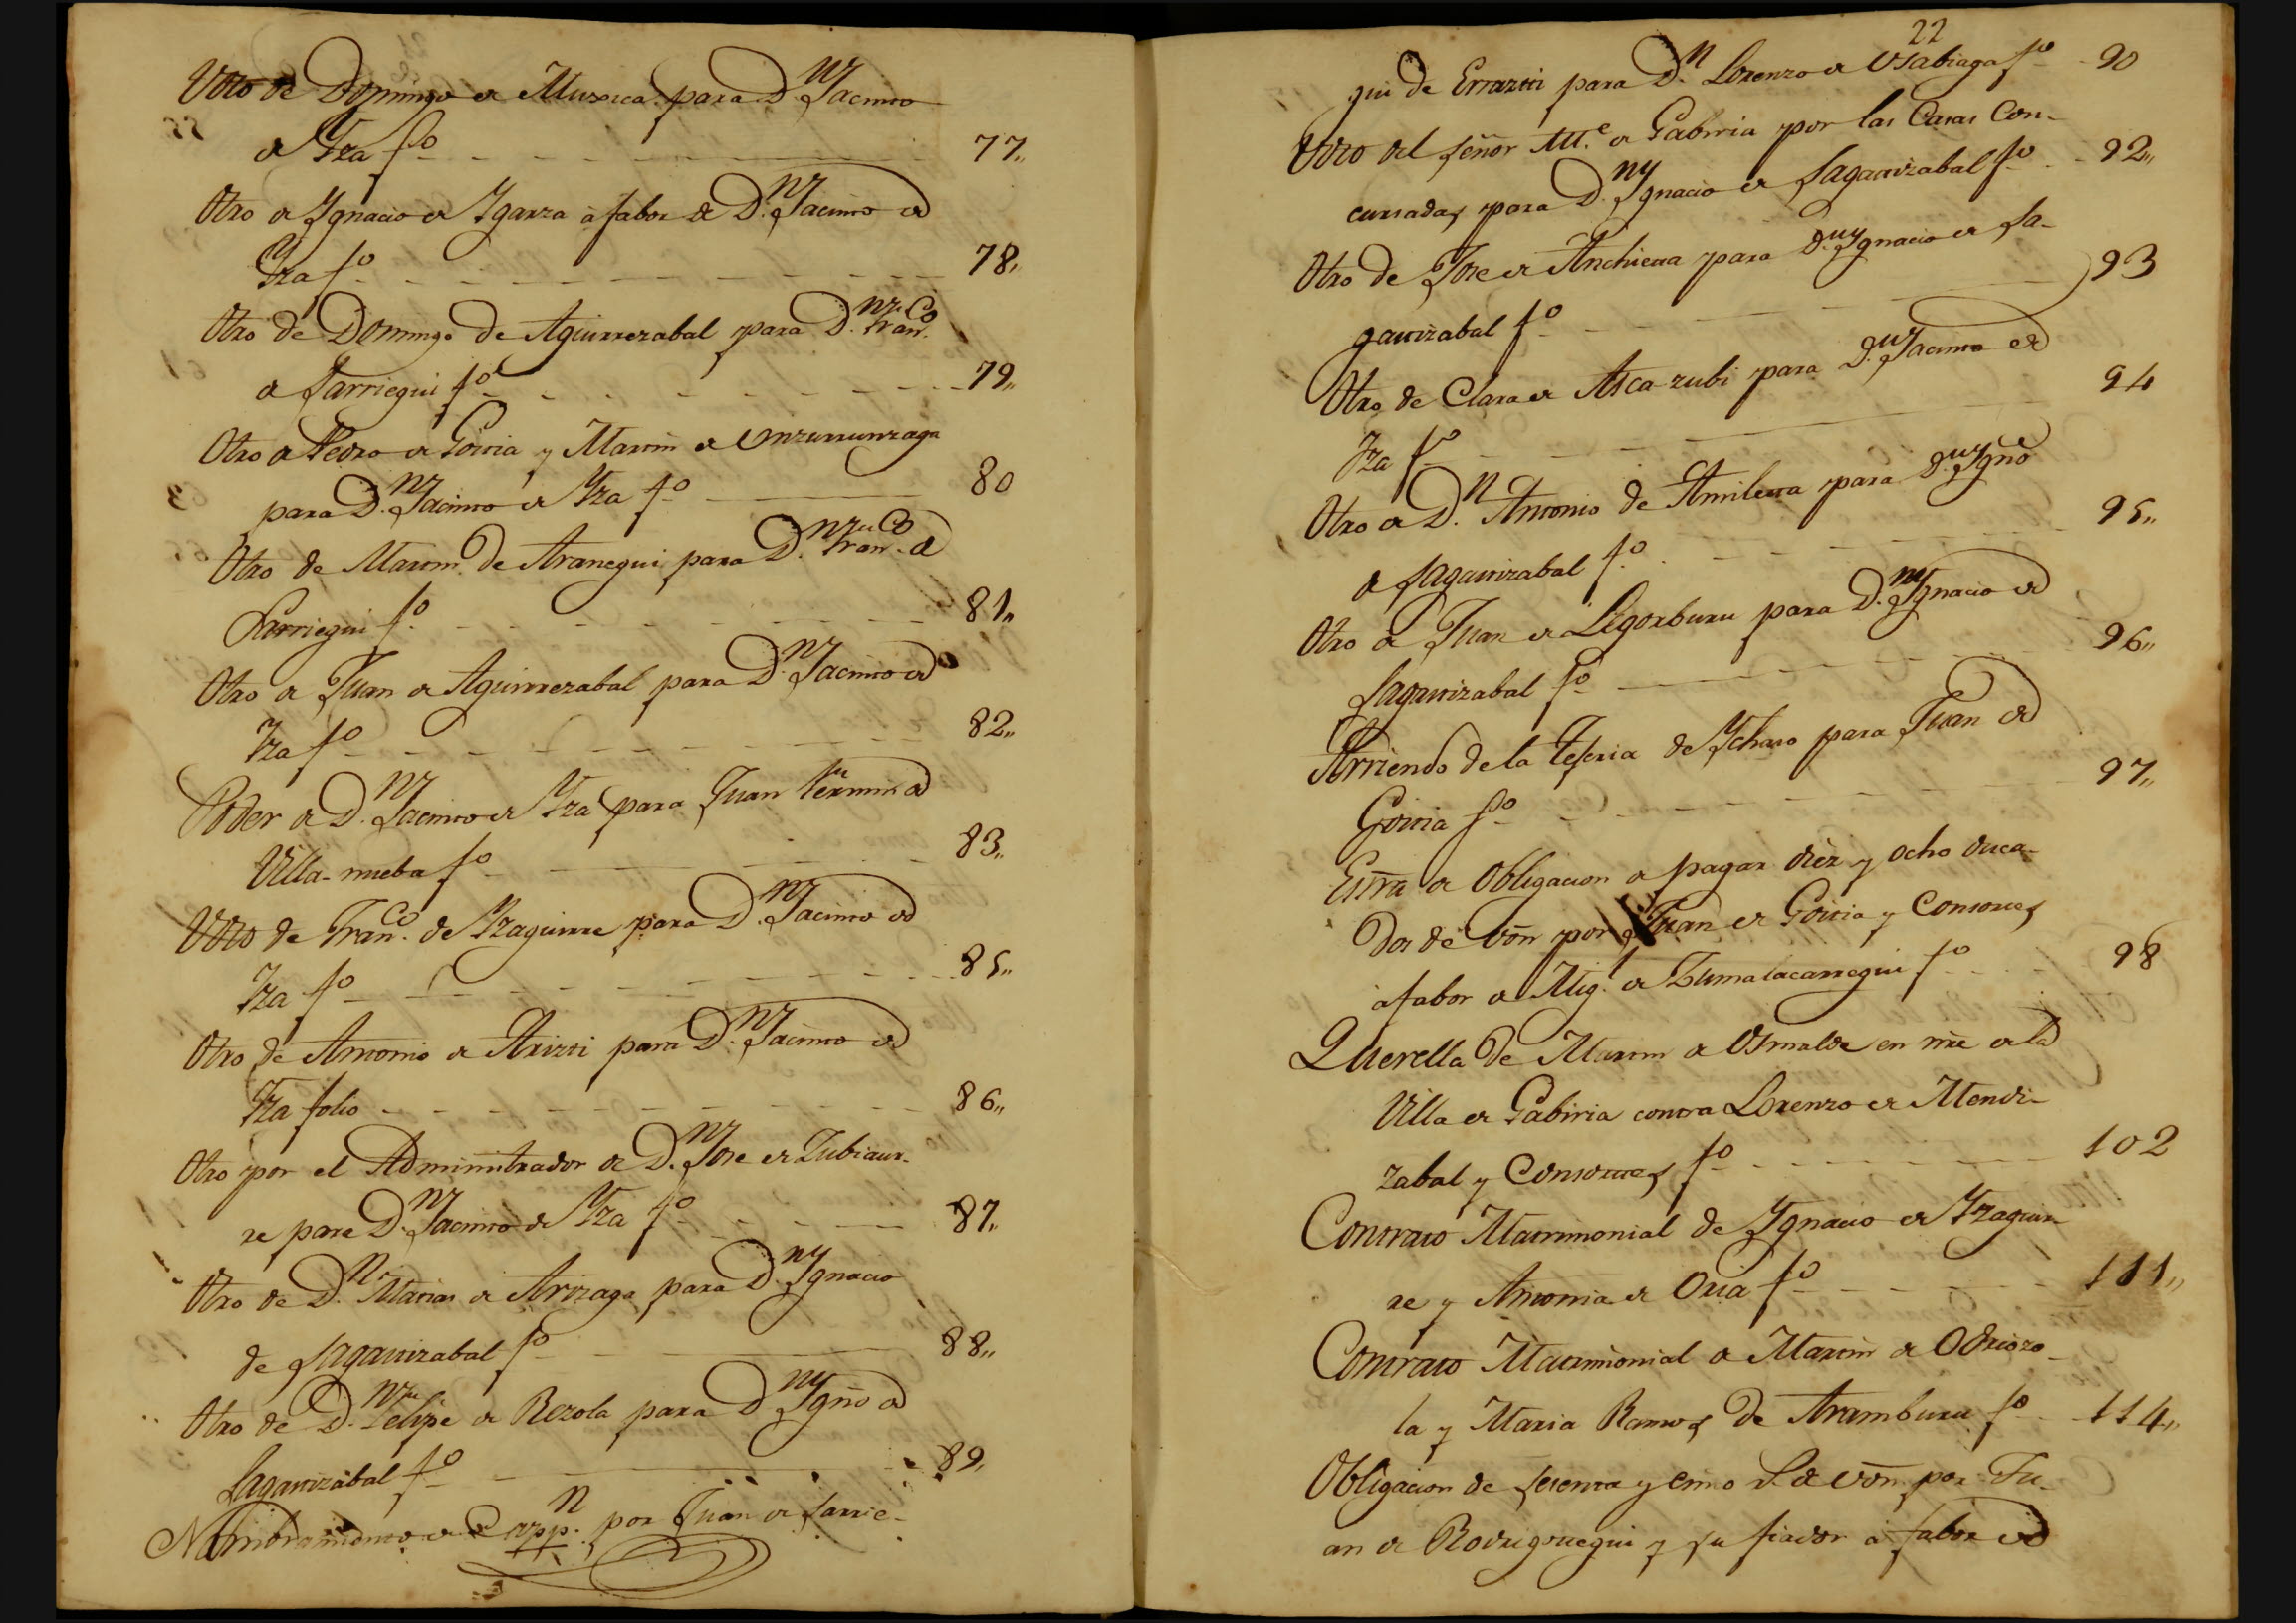 Otro de Domingo de Muxica para D.n Jacinto
de Yza fo 77,,
Otro de Ygnacio de Ygarza à fabor de D.n Jacinto de
Yza fo 78,,
Otro de Domingo de Aguirrezabal para D.n Fran.co
de Larriegui fo 79,,
Otro de Pedro de Goitia y Martin de Unzurrunzaga
para D.n Jacinto de Yza fo 80
Otro de Martin de Aranegui para D.n Fran.co de
Larriegui fo 81,,
Otro de Juan de Aguirrezabal para D.n Jacinto de
Yza fo 82,,
Poder de D.n Jacinto de Yza para Juan Fermin de
Villa-nueba fo 83,,
Otro de Fran.co de Yzaguirre para D.n Jacinto de
Yza fo 85,,
Otro de Antonio de Arizti para D.n Jacinto de
Yza folio 86,,
Otro por el Administrador de D.n Jose de Zubiaur-
re para D.n Jacinto de Yza fo 87,,
Otro de D.n Matias de Arizaga para D.n Ygnacio
de Lagarrizabal fo 88,,
Otro de D.n Felipe de Rezola para D.n Ygño de
Lagarrizabal fo 89,
Nombramiento de Capp.n por Juan de Larrie-
22
gui de Errazti para D.n Lorenzo de Usabiaga fo 90
Otro del señor M.e de Gabiria por las Casas Con-
cursadas para D.n Ygnacio de Lagarrizabal fo 92,,
Otro de Jose de Anchieta para D.n Ygnacio de La-
garrizabal fo 93
Otro de Clara de Ascazubi para D.n Jacinto de
Yza fo 94
Otro de D.n Antonio de Amilleta para D.n Ygño
de Lagarrizabal fo 95,,
Otro de Juan de Legorburu para D.n Ygnacio de
Lagarrizabal fo 96,,
Arriendo de la Tejeria de Ychaso para Juan de
Goitia fo 97,,
Escrã de Obligacion de pagar diez y ocho duca-
dos de vón por Juan de Goitia y Consortes
à fabor de Mig.l de Zumalacarregui fo 98
Querella de Martin de Osinalde en nre de la
Villa de Gabiria contra Lorenzo de Mendi-
zabal y Consortes fo 102
Contrato Matrimonial de Ygnacio de Yzaguir-
re y Antonia de Oria fo 111,,
Contrato Matrimonial de Martin de Odriozo-
la y Maria Ramos de Aramburu fo 114,,
Obligacion de sesenta y cinco de vón por Ju-
an de Rodrigotegui y su fiador à fabor de